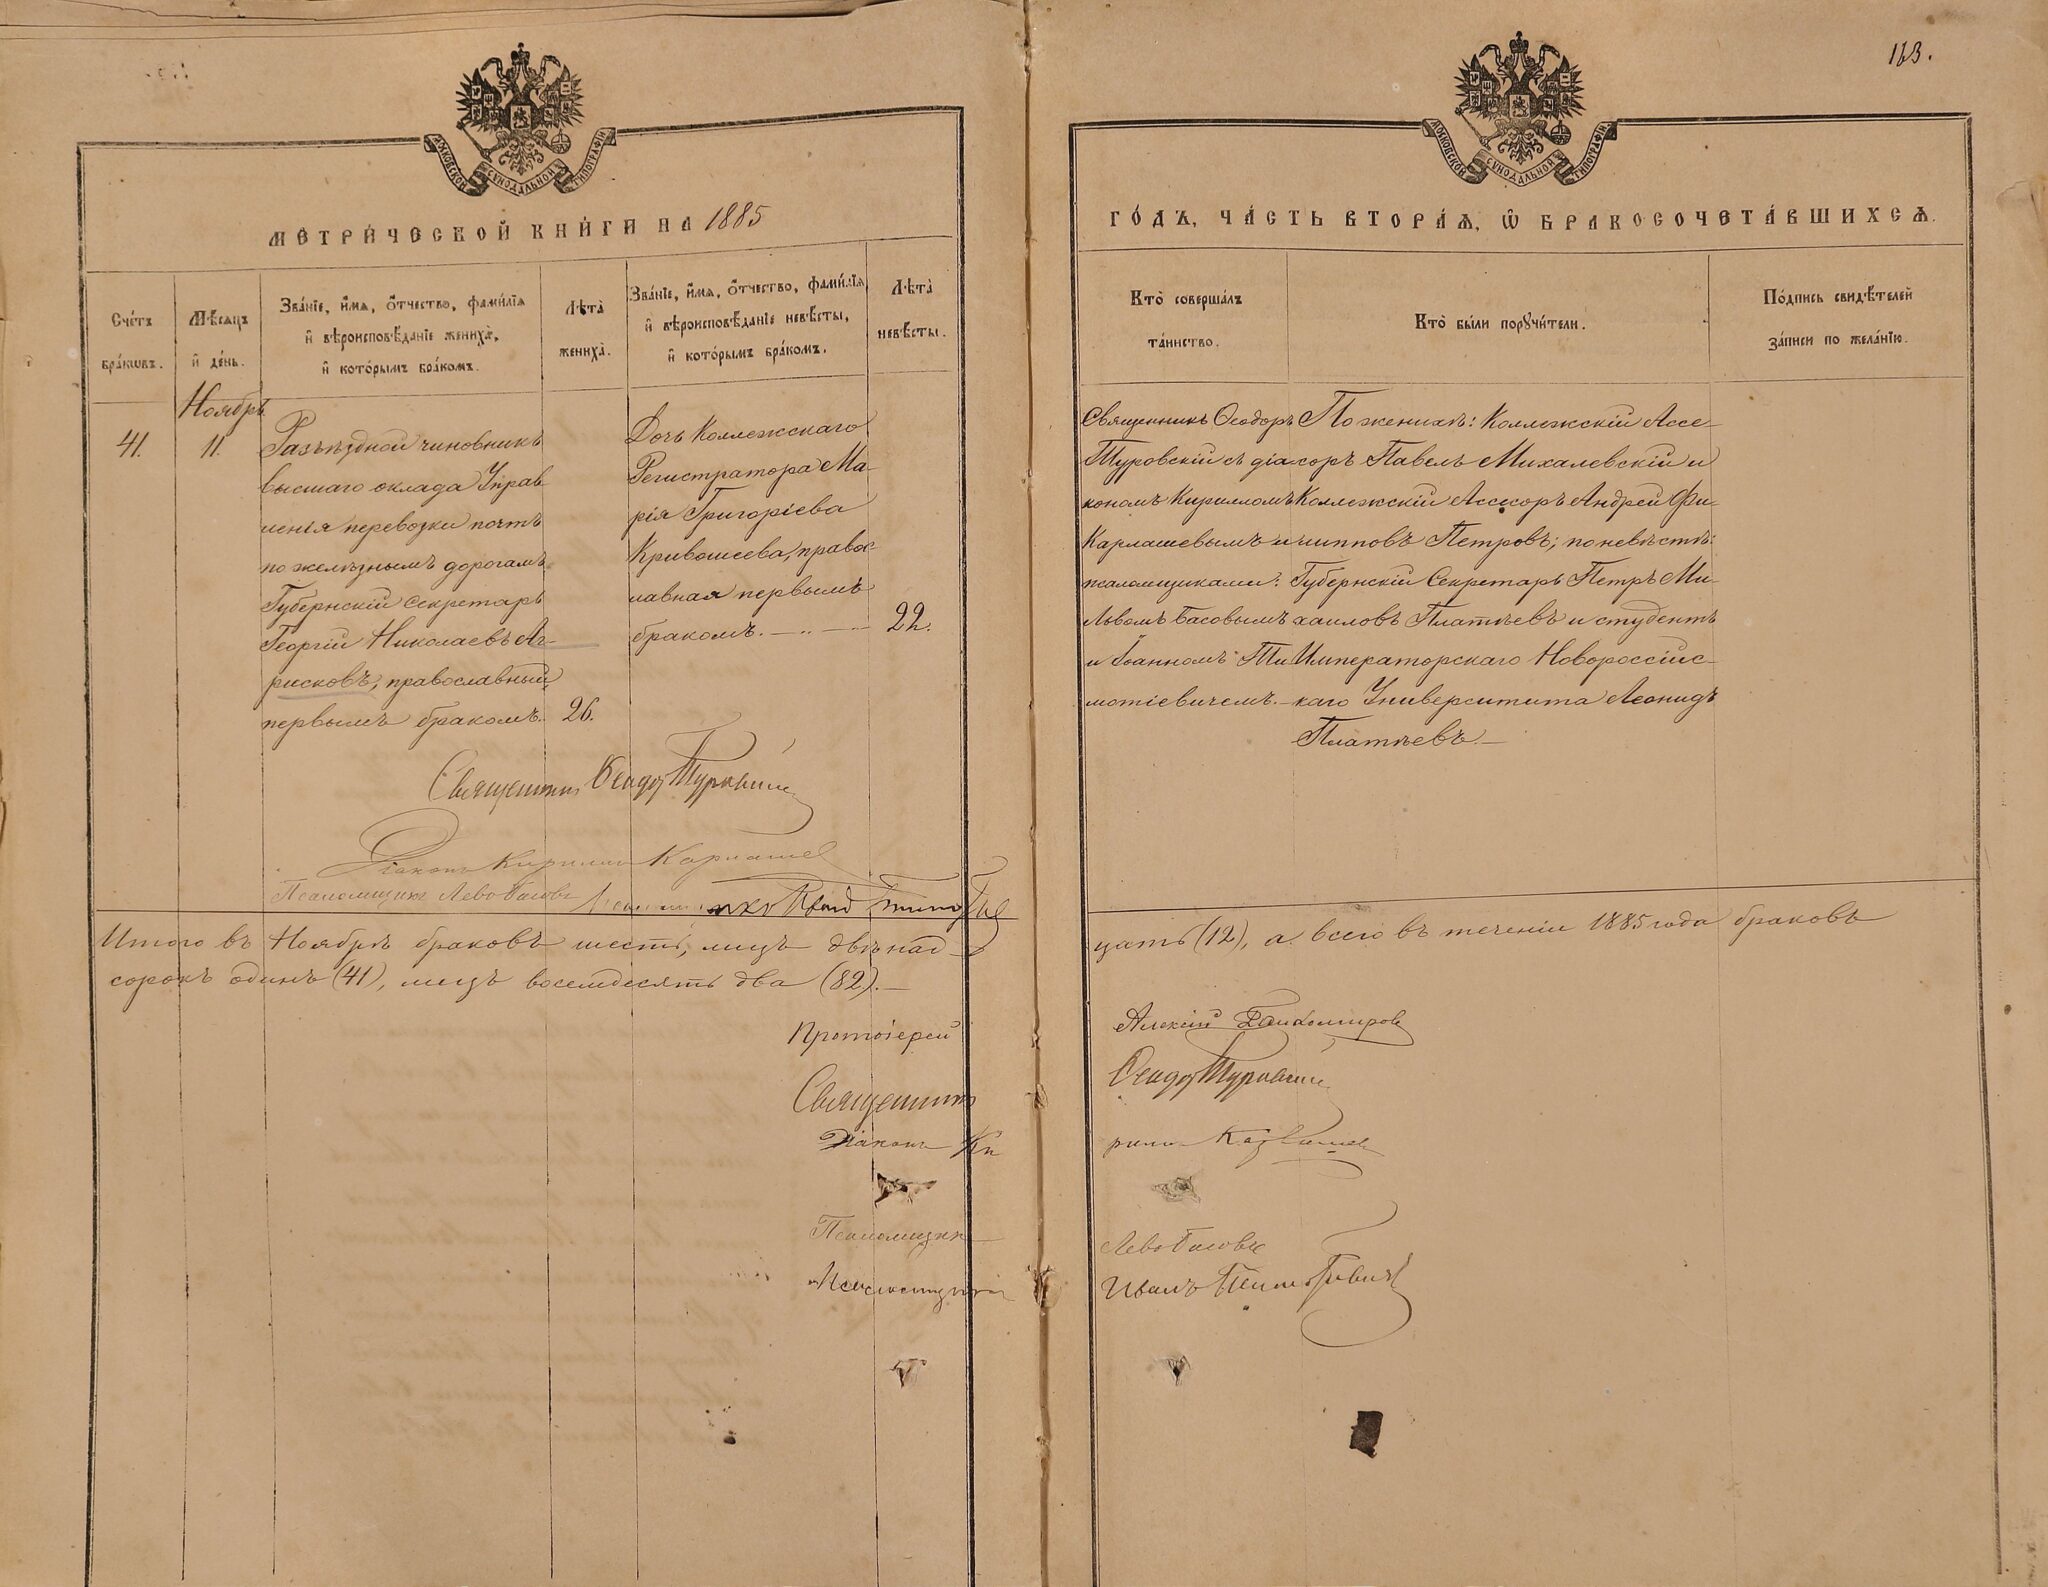 163.
МОСКОВСКОЙ СѴНОДАЛЬНОЙ ТИПОГРАФІИ
МОСКОВСКОЙ СѴНОДАЛЬНОЙ ТИПОГРАФІИ
МЕТРИ́ЧЕСКОЙ КНИ́ГИ НА 1885
ГО́ДЪ, ЧА́СТЬ ВТОРА́Ѧ, Ѽ БРАКОСОЧЕТА́ВШИХСѦ.
Сче́тъ
бра́кѡвъ.
Мѣ́сѧцъ
и҆ де́нь.
Зва́нїе, и҆́мѧ, ѻ҆́тчество, фами́лїѧ
и҆ вѣроисповѣ́данїе жениха̀,
и҆ кото́рымъ бра́комъ.
Лѣта̀
жениха̀.
Зва́нїе, и҆́мѧ, ѻ҆́тчество, фами́лїѧ
и҆ вѣроисповѣ́данїе невѣ́сты,
и҆ кото́рымъ бра́комъ.
Лѣта̀
невѣ́сты.
Кто̀ соверша́лъ
та́инство.
Кто̀ бы́ли порꙋчи́тели.
По́дпись свидѣ́телей
за́писи по жела́нїю.
41.
Ноябрь
11.
Разъѣздной чиновникъ
высшаго оклада Управ
ленія перевозки почтъ
по желѣзнымъ дорогамъ
Губернскій Секретарь
Георгій Николаевъ Аг-
рисковъ, православный,
первымъ бракомъ.
26.
Дочь Коллежскаго
Регистратора Ма-
рія Григоріева
Кривошеева, правос-
лавная первымъ
бракомъ.
22.
Священникъ Ѳеодоръ
Туровскій съ діа
кономъ Кирилломъ
Карлашевымъ и
псаломщиками:
Львомъ Басовымъ
и Іоанномъ Ти
мотіевичемъ.
По женихѣ: Коллежскій Ассе-
соръ Павелъ Михалевскій и
Коллежскій Ассесоръ Андрей Фи-
липповъ Петровъ; по невѣстѣ:
Губернскій Секретарь Петръ Ми-
хаиловъ Платѣевъ и студентъ
Императорскаго Новороссійс-
каго Университета Леонидъ
Платѣевъ.
Священникъ Ѳеодоръ Туровскій
Діаконъ Кириллъ Карлашев
Псаломщикъ Левъ Басовъ
Итого въ Ноябрѣ браковъ шесть, лицъ двѣнад
цать (12), а всего въ теченіи 1885 года браковъ
сорокъ одинъ (41), лицъ восемдесятъ два (82).
Протоіерей Алексій
Священникъ Ѳеодоръ Туровскій
Діаконъ Ки
рилъ Карлашев
Псаломщикъ Левъ Басовъ
Псаломщикъ Иванъ Тимотіевичъ